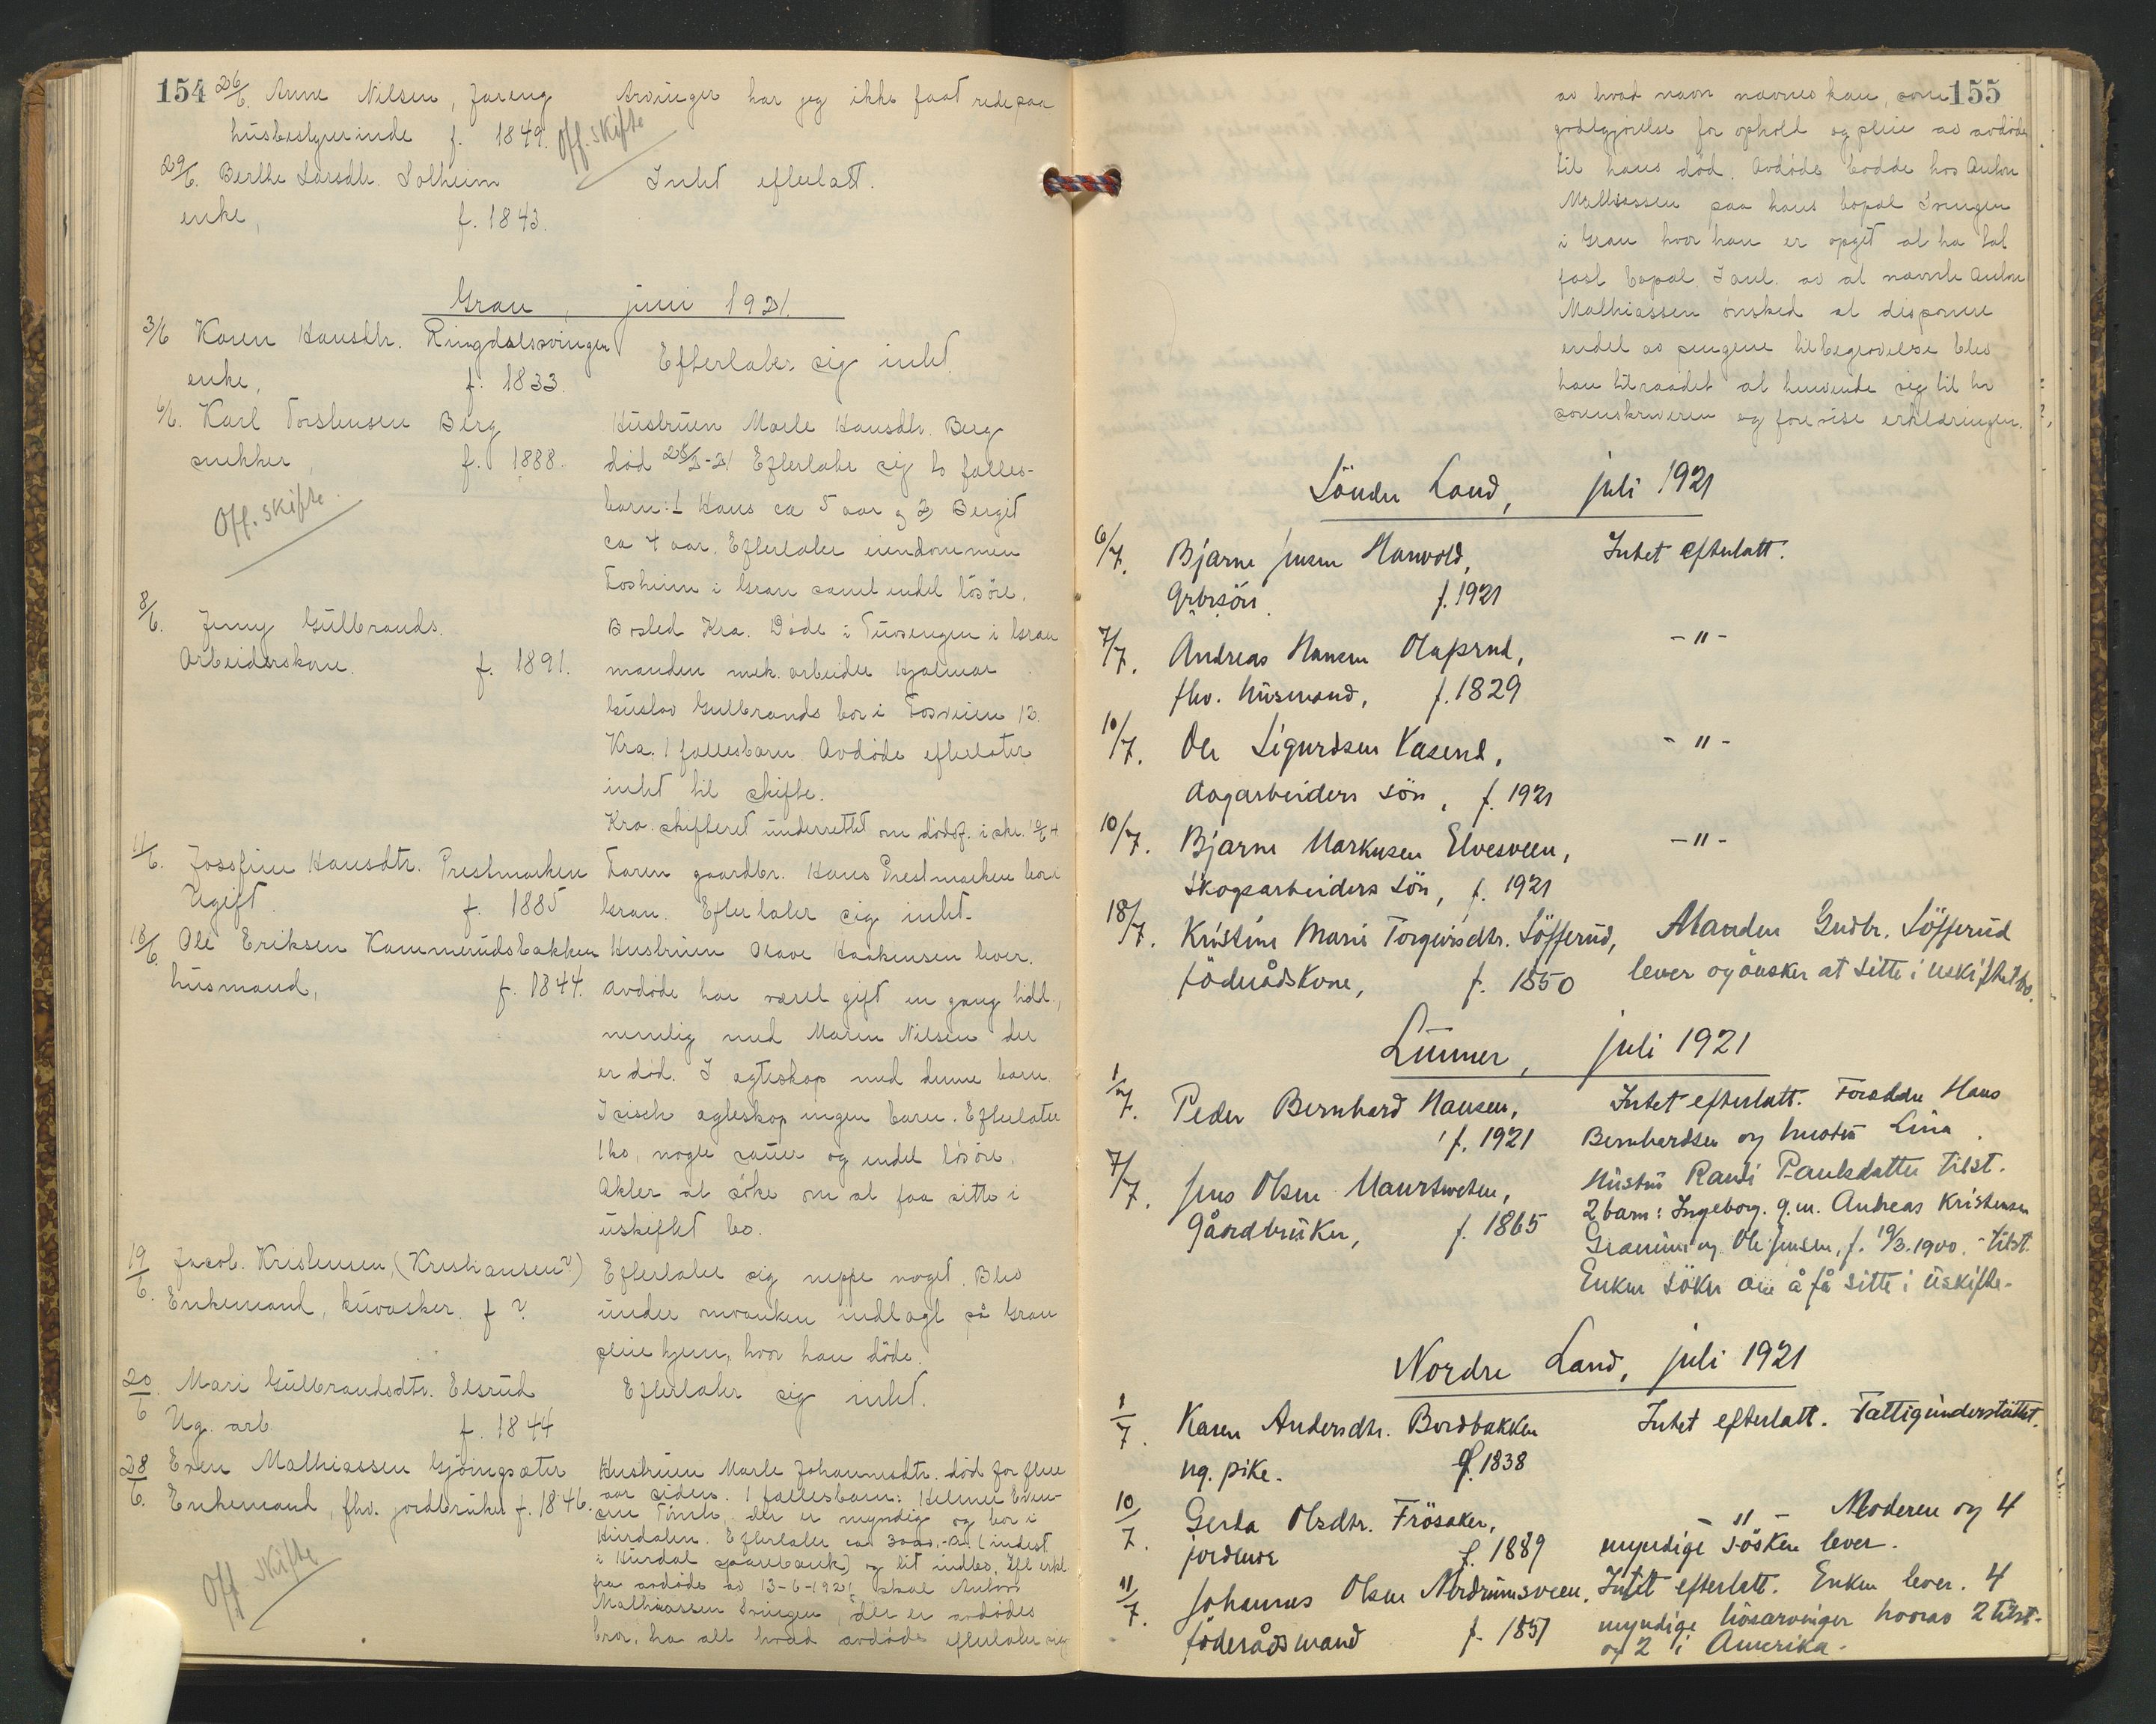 154
26/6. Anne Nilsen, Jareng Arvinger har jeg ikke faat rede paa
husbestyrerinde f. 1849. Off. skifte
29/6. Berthe Larsdtr. Solheim Intet efterlatt.
enke, f. 1843.
Gran, juni 1921.
3/6 Karen Hansdtr. Ringdalssvingen Efterlater sig intet.
enke, f. 1833.
6/6. Karl Torstensen Berg
snekker, f. 1888.
Off. skifte.
Hustruen Marte Hansdtr. Berg
død Efterlater sig to fælles-
barn: 1 Hans ca 5 aar og 2 Berget
ca 4 aar. Efterlater eiendommen
Tosheim i Gran samt endel løsøre.
8/6. Jenny Gülbrands.
Arbeiderskone. f. 1891.
Bosted Kra. Døde i Tüvsengen i Gran
manden mek. arbeider Hjalmar
Güstav Gulbrands bor i Fosveien 13.
Kra. 1 fællesbarn. Avdøde efterlater
intet til skifte.
Kra. skifteret ünderrettet om dødsf. i skr.
11/6. Jossfine Hansdtr. Prestmarken Faren gaardbr. Hans Prestmarken bor i
Ugift. f. 1885 Gran. Efterlater sig intet.
18/6. Ole Eriksen Kammerüdsbakken Hustruen Olave Haakensen lever.
hüsmand, f. 1844. Avdøde har været gift en gang tidl.,
nemlig med Maren Nilsen der
er død. I ægteskap med denne barn.
I sisste ægteskap ingen barn. Efterlater
1 ko, nogle saüer og endel løsøre.
Akter at søke om at faa sitte i
üskiftet bo.
19/6. Jacob. Kristensen, (Kristiansen?) Efterlater sig neppe noget. Blev
Enkemand, küvasker. f ? ünder indlagt på Gran
pleiehjem, hvor han døde.
20/6. Mari Gülbrandsdtr. Elsrüd Efterlater sig intet.
Ug. arb. f. 1844
28/6. Even Mathiassen Gjøingsæter
Enkemand, fhv. jordbrüker f. 1846.
Off skifte
Hustruen Marte Johannesdtr. død for flere
aar siden. 1 fællesbarn: Helmer Even-
sen Tømte, der er myndig og bor i
Hürdalen. Efterlater ca 3000,- kr. (indest
i Hürdal sparebank) og litt indbo. Ifl erkl
fra avdøde av 13-6-1921 skal Anton
Mathiassen Svingen, der er avdødes
bror, ha alt hvad avdøde efterlater sig
155
av hvad navn nævnes kan, som
godtgjørelse for ophold og pleie av avdøde
til hans død. Avdøde bodde hos Anton
Mathiassen paa hans bopæl Svingen
i Gran hvor han er opgit at ha hat
fast bopæl. I anl. av at nævnte Anton
Mathiassen ønsked at disponere
endel av pengene til begravelse blev
han tilraadet at henvende sig til hr
sorenskriveren og forevise erklæringen.
Söndre Land, juli 1921
6/7. Bjarne Jensen Hanvold, Intet efterlatt.
Grbrsön. f. 1921
7/7. Andreas Hansen Olaprud, -"-
fhv. hüsmand, f. 1829
10/7. Ole Sigurdsen Kaserud, -"-
dagarbeiders sön, f. 1921
10/7. Bjarne Markusen Elvesveen, -"-
skogsarbeiders sön, f. 1921
18/7. Kristine Marie Torgeirsdtr. Söfferüd, Manden Gudbr. Söfferüd
föderådskone, f. 1850 lever og önsker at sitte i uskiftet bo.
Lünner, juli 1921
1/7. Peder Bernhard Hansen, Intet efterlatt. Forældre Hans
f. 1921 Bernhardsen og hustrü Lina.
7/7. Jens Olsen Maurtveten,
Gårdbrüker, f. 1865
Hüstrü Randi Paulsdatter tilst.
2 barn: Ingeborg. g.m. Andreas Kristensen
og Ole Jensen, f. 19/3.1900. - tilst.
Enken söker om å få sitte i üskifte-
Nordre Land, juli 1921
1/7. Karen Andersdtr. Bordbakken Intet efterlatt. Fattigünderstöttet.
ug. pike. f. 1838
10/7. Gerda Olsdtr. Frösaker, -"- Moderen og 4
jordeier f. 1889 myndige sösken lever.
11/7. Johannes Olsen Nerdrumsveen. Intet efterlatt. Enken lever. 4
föderådsmand f. 1851 myndige livsarvinger hvorav 2 tilst.
og 2 i Amerika.